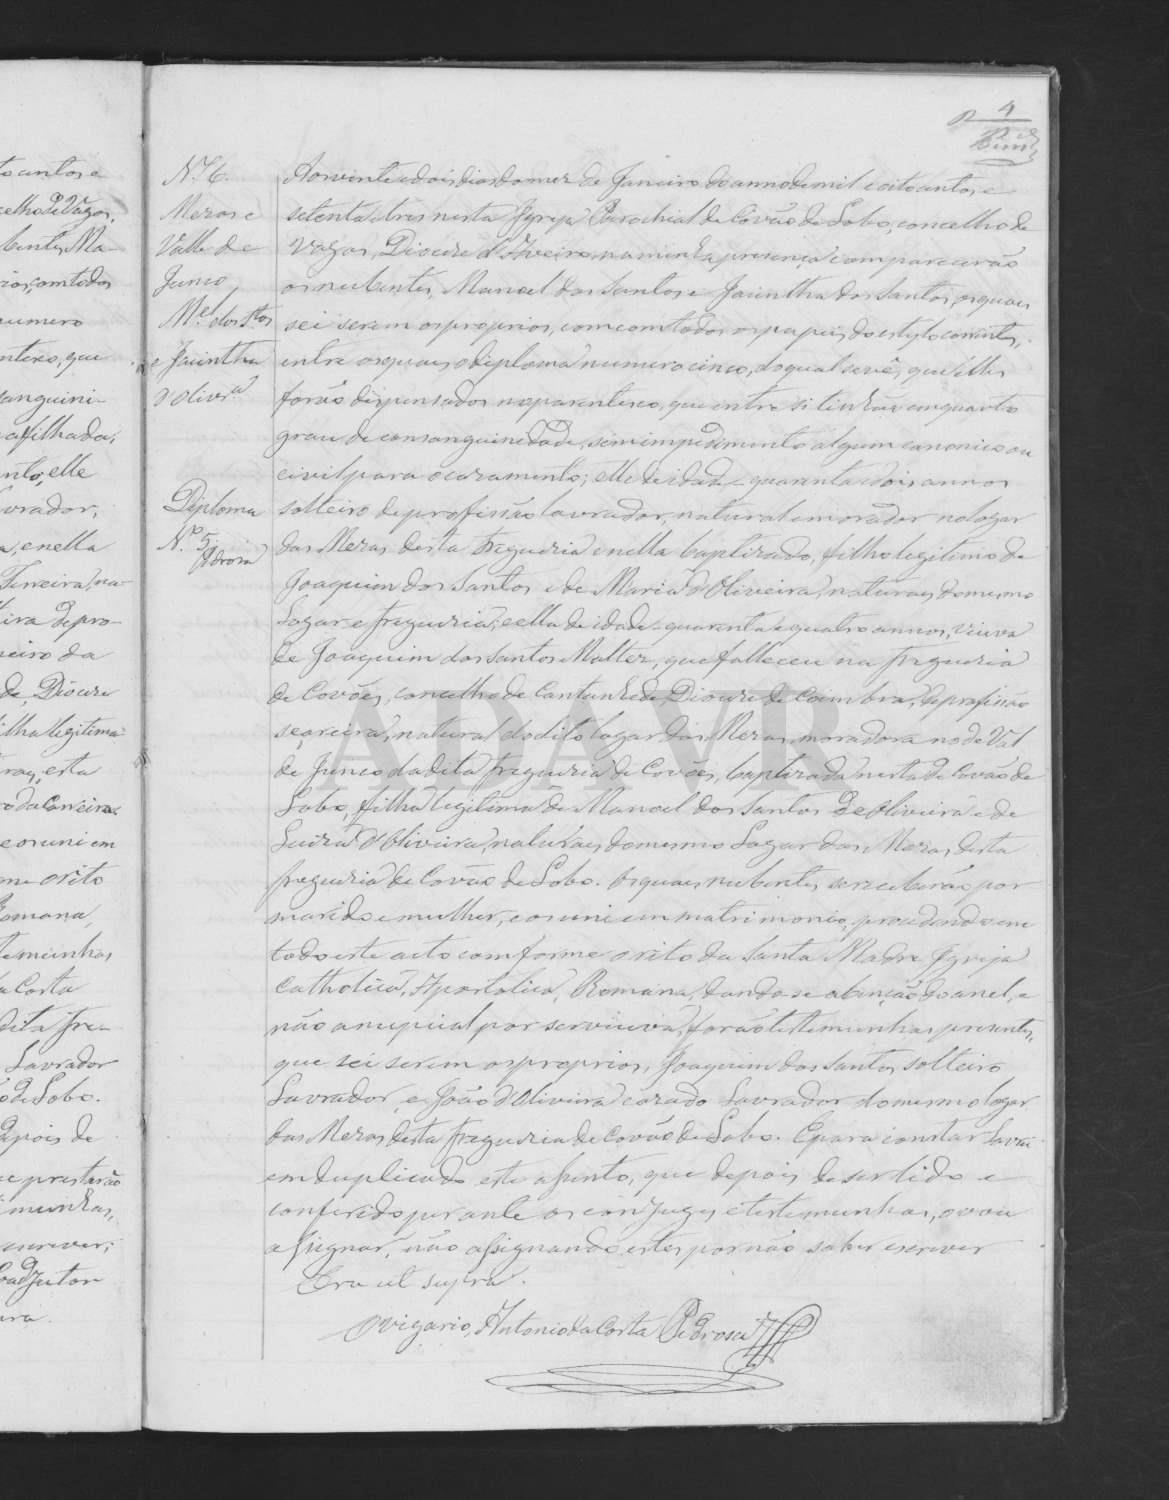 4
N.º 6.
Mezas e
Valle de
Junco
M.el dos S.tos
e Jacintha
d'Olivr.a
Diploma
N.º 5.
Pedrosa
Aos vinte e dois dias do mez de Janeiro do anno de mil e oitocentos e
setenta e tres nesta Igreja Parochial de Covão de Lobo, concelho de
Vagos, Diocese d'Aveiro, na minha presença compareceráo
os nubentes, Manoel dos Santos e Jacintha dos Santos, os quaes
sei serem os proprios, com com todos os papeis do estylo correntes,
entre os quaes o diploma numero cinco, do qual se vê, que elles
forão dispensados no parentesco, que entre si tinhão em quarto
grau de consanguinedade, sem impedimento algum canonico ou
civil para o casamento; elle de idade quarenta e dois annos
solteiro de profissão lavrador, natural e morador no logar
das Mezas desta freguezia e nella baptizado, filho legitimo de
Joaquim dos Santos e de Maria d'Oliveira, naturaes do mesmo
Logar e freguezia; e ella de idade quarenta e quatro annos, viuva
de Joaquim dos Santos Malter, que falleceu na freguezia
de Covões, concelho de Cantanhede, Diocese de Coimbra, de profissão
seareira, natural do dito logar das Mezas, morradora no de Val
de Junco da dita freguezia de Covões, baptizada nesta de Covão de
Lobo, filha legitima de Manoel dos Santos de Oliveira e de
Luiza d'Oliveira, naturaes do mesmo Logar das Mezas, desta
freguezia de Covão de Lobo. Os quaes nubentes se receberão por
marido e mulher, e os uni em matrimonio, procedendo em
todo este acto comforme o rito da Santa Madre Igreja
Catholica, Apostolica, Romana, dando-se a benção do anel, e
não a nupcial por ser viuva, forão testemunhas presentes,
que sei serem os proprios, Joaquim dos Santos, solteiro
Lavrador, e João d'Oliveira cazado Lavrador do mesmo logar
das Mezas desta freguezia de Covão de Lobo. E para constar Lavrei
em duplicado este assento, que depois de ser lido e
conferido perante os conjuges e testemunhas, o vou
assignar, não assignando estes por não saber escrever
Era ut supra.
O vigario, Antonio da Costa Pedrosa
ADAVR